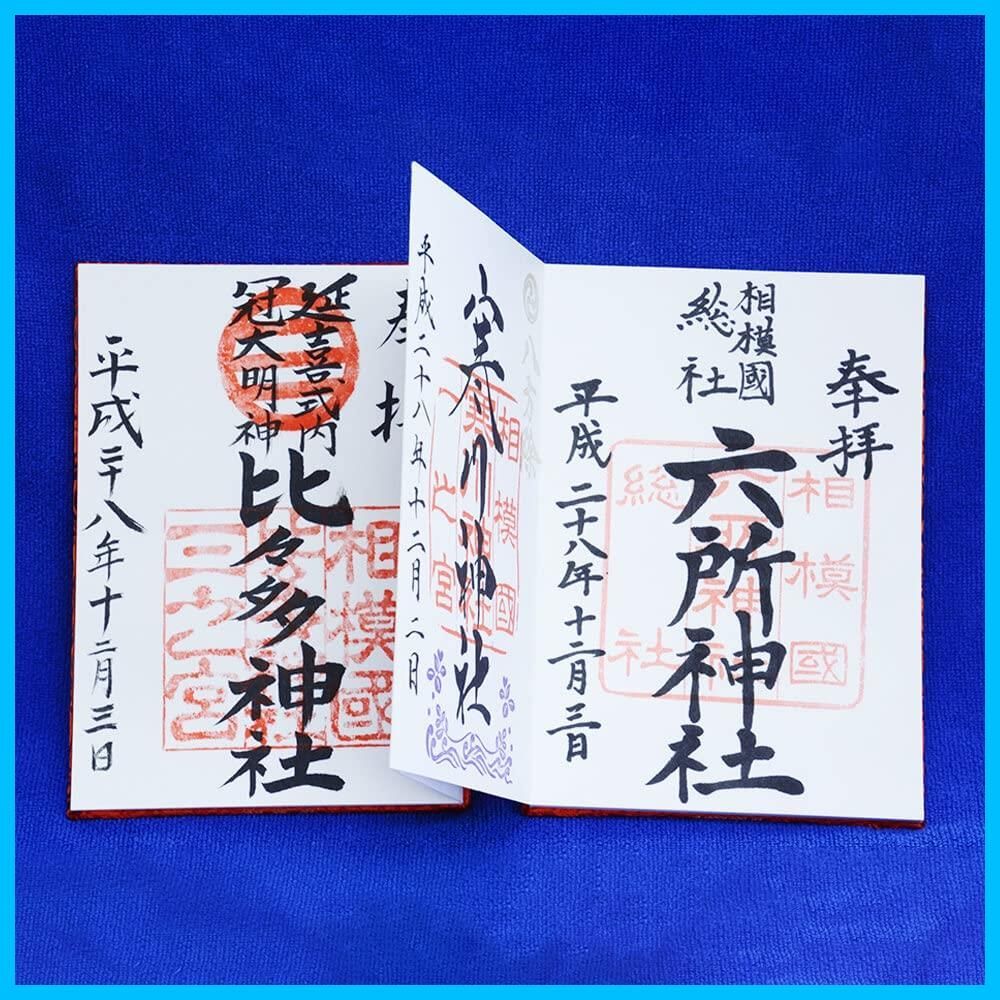 奉拝
相模國
総社
六所神社
平成二十八年十二月三日
相模國
総社
八方除
寒川神社
相模國
一之宮
平成二十八年十二月二日
奉拝
延喜式内
冠大明神
比々多神社
相模國
三之宮
平成二十八年十二月三日